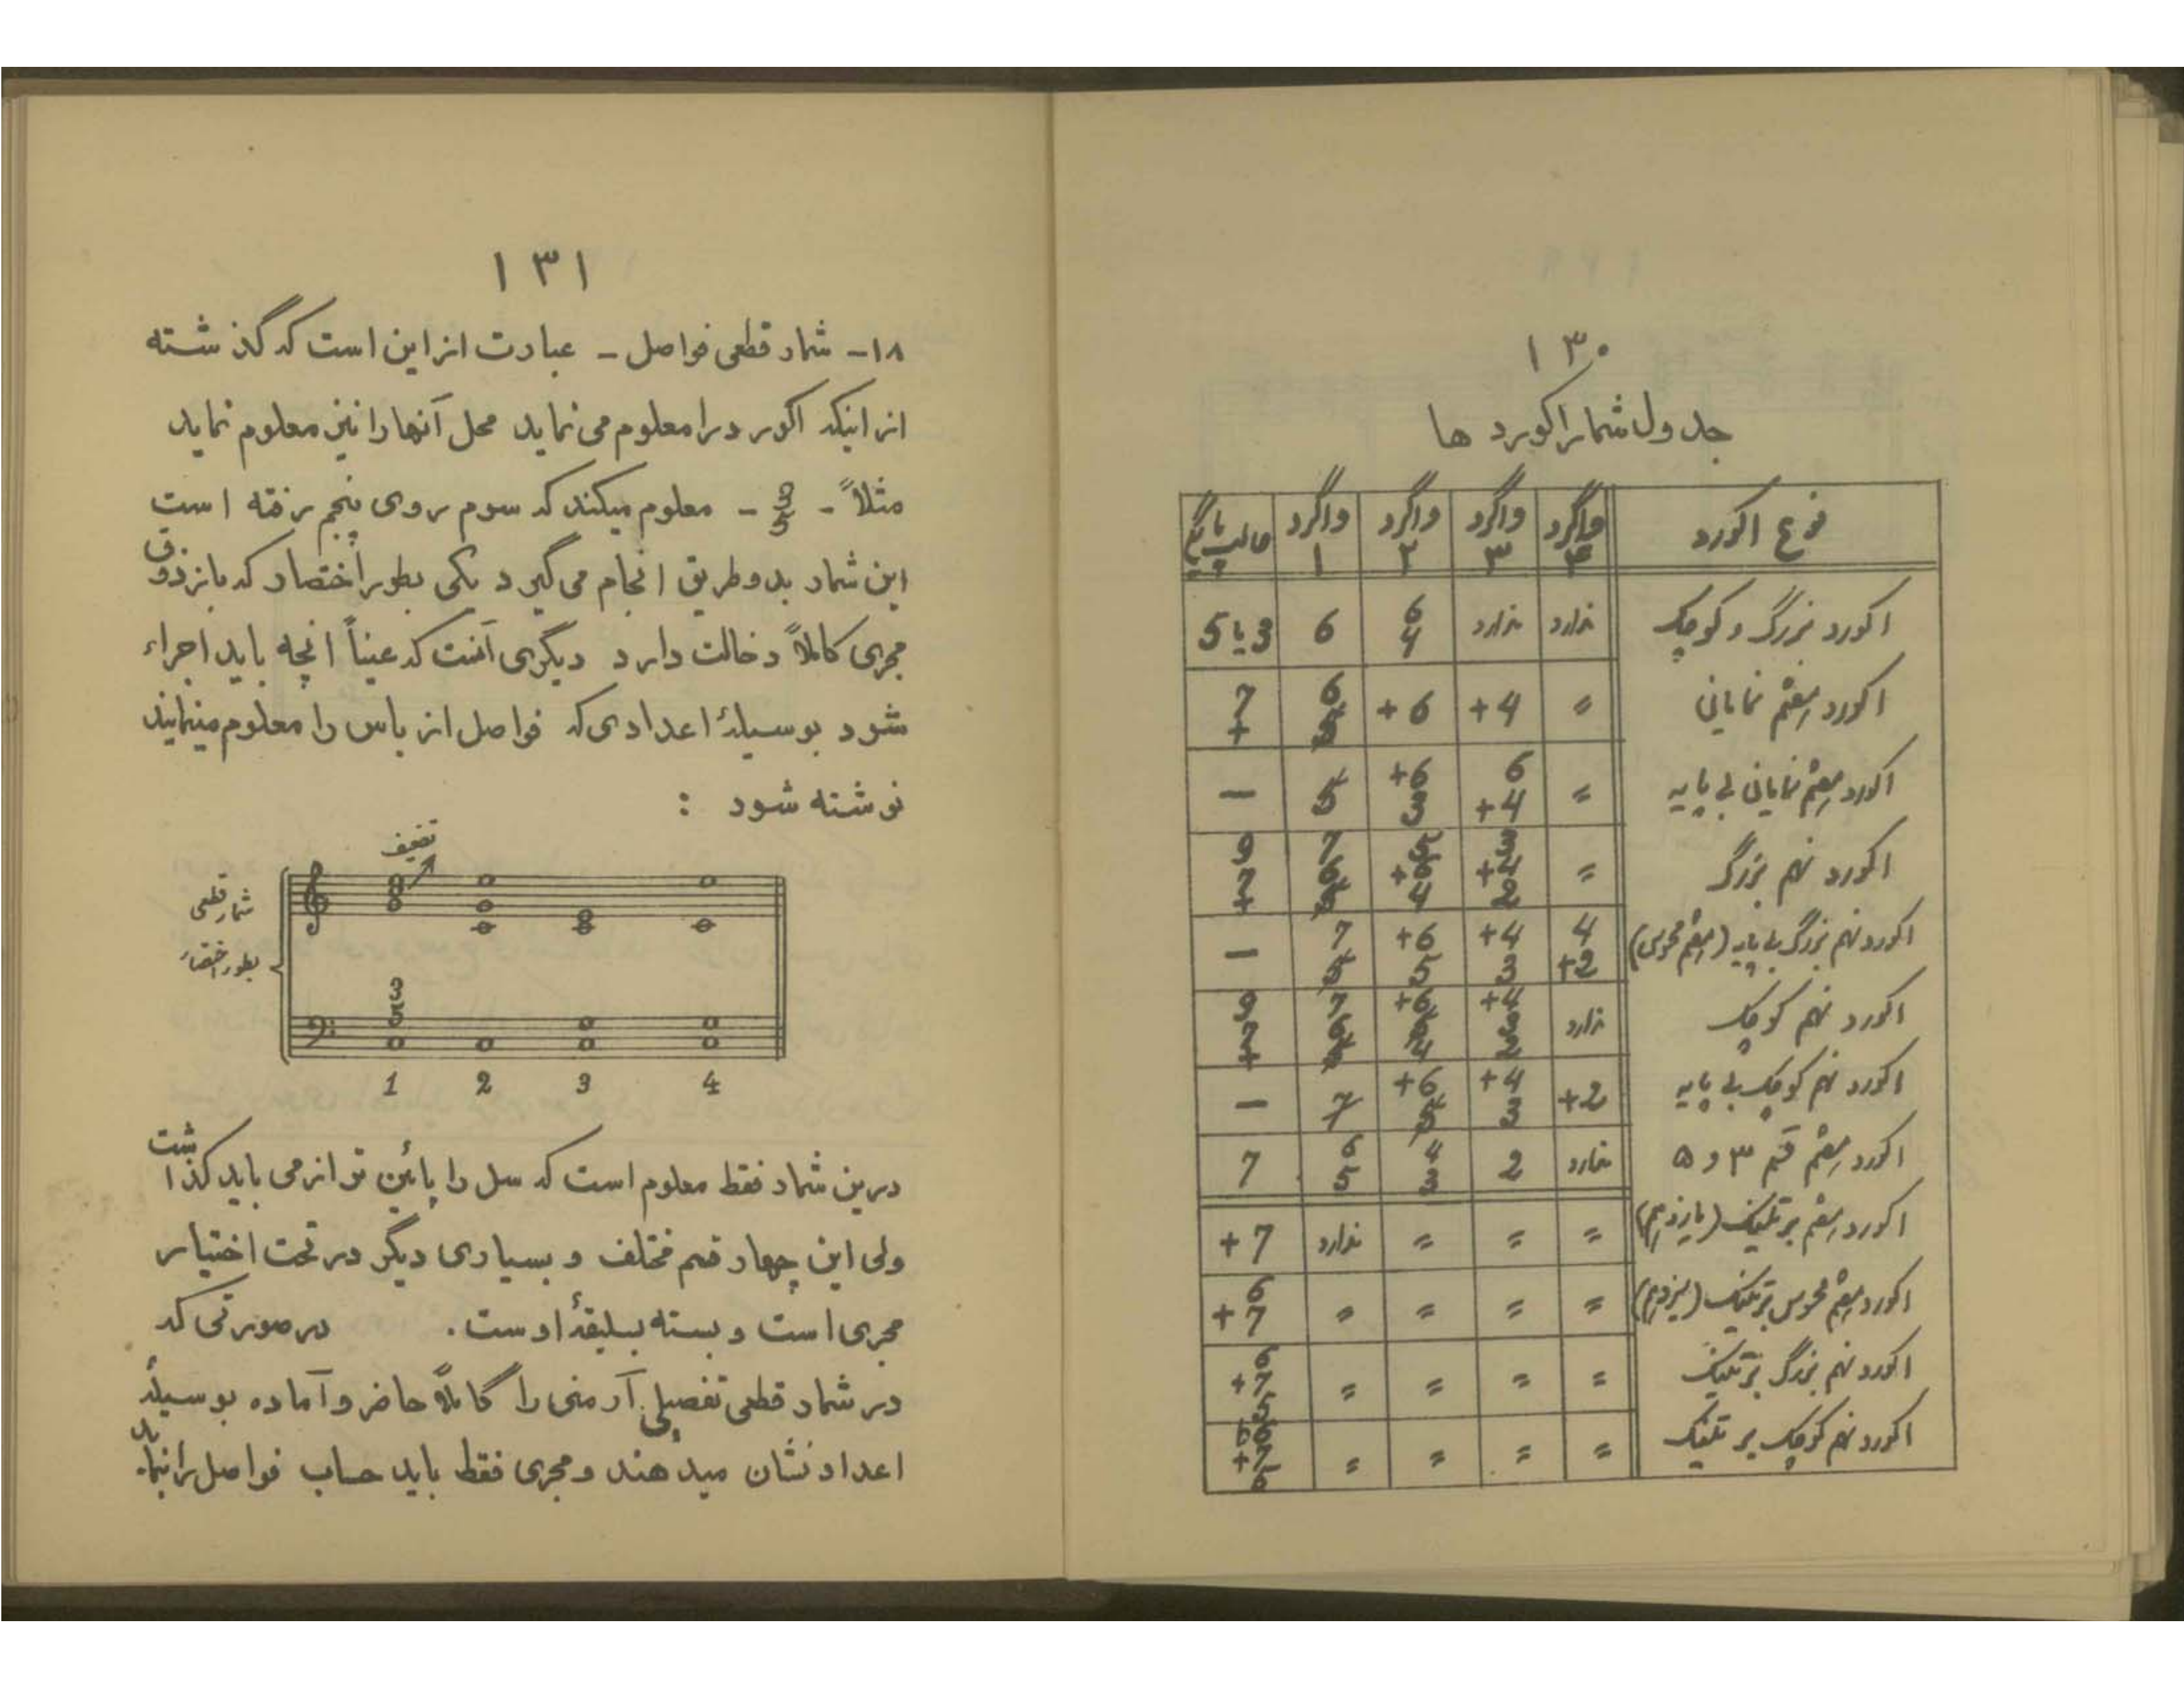 ۱۳۰
جدول شمار اکورد ها
نوع اکورد واگرد ۴ واگرد ۳ واگرد ۲ واگرد ۱ حالت پایگی
اکورد بزرگ و کوچک ندارد ندارد 6 4 6 3 یا 5
اکورد هفتم نمایانی = +4 +6 6 5 7 +
اکورد هفتم نمایانی بی پایه = 6 +4 +6 3 5 —
اکورد نهم بزرگ = 3 +4 2 5 +6 4 7 6 5 9 7 +
اکورد نهم بزرگ بی پایه (هفتم محسوس) 4 +2 +4 3 +6 5 7 5 —
اکورد نهم کوچک ندارد +4 3 2 +6 5 4 7 6 5 9 7 +
اکورد نهم کوچک بی پایه +2 +4 3 +6 5 7 —
اکورد هفتم قسم ۳ و ۵ ندارد 2 4 3 6 5 7
اکورد هفتم بر تنیک (یازدهم) = = = ندارد +7
اکورد هفتم محسوس بر تنیک (سیزدهم) = = = = 6 +7
اکورد نهم بزرگ بر تنیک = = = = 6 +7 5
اکورد نهم کوچک بر تنیک = = = =
۱۳۱
۱۸- شمار قطعی فواصل - عبارت از این است که گذشته
از اینکه اکورد را معلوم می نماید محل آنها را نیز معلوم نماید
مثلاً - 3 5 - معلوم میکند که سوم روی پنجم رفته است
این شمار بدو طریق انجام می گیرد یکی بطور اختصار که باز ذوق
مجری کاملاً دخالت دارد دیگری آنست که عیناً انچه باید اجراء
شود بوسیلهٔ اعدادی که فواصل از باس را معلوم مینمایند
نوشته شود :
تضعیف
شمار قطعی
بطور اختصار
3
5
1 2 3 4
درین شمار فقط معلوم است که سل را پائین تر از می باید گذاشت
ولی این چهار قسم مختلف و بسیاری دیگر در تحت اختیار
مجری است و بسته بسلیقهٔ اوست . در صورتی که
در شمار قطعی تفصیلی آرمنی را کاملاً حاضر و آماده بوسیلهٔ
اعداد نشان میدهند و مجری فقط باید حساب فواصل را نماید